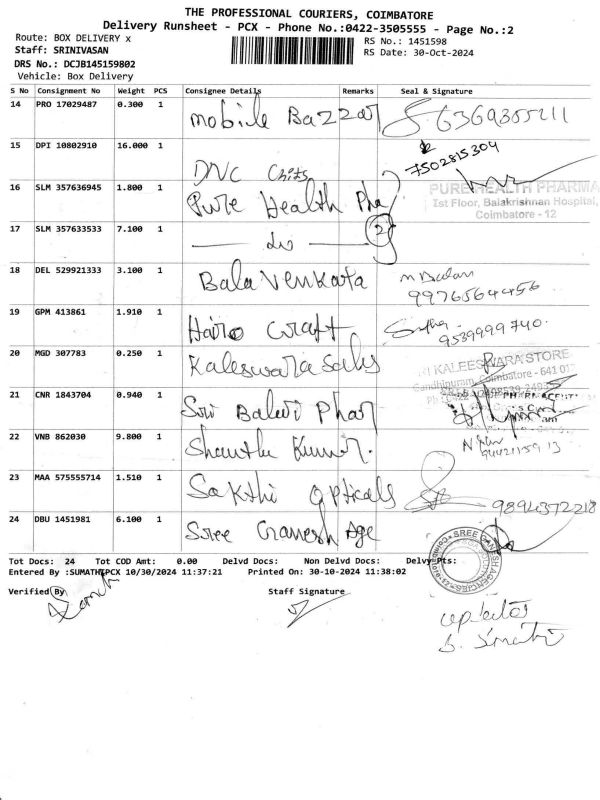 THE PROFESSIONAL COURIERS, COIMBATORE
Delivery Runsheet - PCX - Phone No.:0422-3505555 - Page No.:2
Route: BOX DELIVERY x
RS No.: 1451598
Staff: SRINIVASAN
RS Date: 30-Oct-2024
DRS No.: DCJB145159802
Vehicle: Box Delivery
S No Consignment No Weight PCS Consignee Details Remarks Seal & Signature
14 PRO 17029487 0.300 1 Mobile Bazzar 6369385211
15 DPI 10802910 16.000 1 DNC Chits 7502815304
16 SLM 357636945 1.800 1 Pure Health Phar
PURE HEALTH PHARMA
Ist Floor, Balakrishnan Hospital,
Coimbatore - 12
17 SLM 357633533 7.100 1 do 2
18 DEL 529921333 3.100 1 Bala Venkata 9976564456
19 GPM 413861 1.910 1 Hairo Craft 9539999740
20 MGD 307783 0.250 1 Kaleswara Sales
KALEESWARA STORE
Gandhipuram, Coimbatore - 641 012
21 CNR 1843704 0.940 1 Sri Balaji Phar
22 VNB 862030 9.800 1 Shantha Kumar.
23 MAA 575555714 1.510 1 Sakthi opticals 9894372218
24 DBU 1451981 6.100 1 Sree Ganesh Age
SREE GANESH AGENCIES
Tot Docs: 24 Tot COD Amt: 0.00 Delvd Docs: Non Delvd Docs: Delvy Pts:
Entered By :SUMATHIPCX 10/30/2024 11:37:21 Printed On: 30-10-2024 11:38:02
Verified By Staff Signature